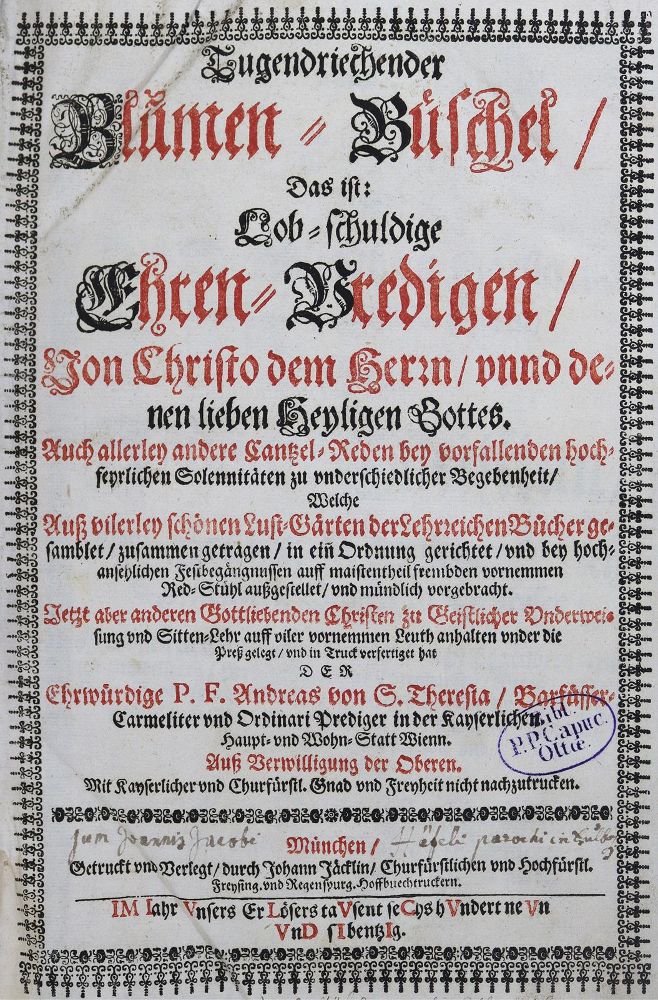 Tugendriechender
Blůmen-Büschel/
Das ist:
Lob-schuldige
Ehren-Predigen/
Von Christo dem Herrn/ vnnd de-
nen lieben Heyligen Gottes.
Auch allerley andere Cantzel-Reden bey vorfallenden hoch-
feyrlichen Solennitäten zu vnderschiedlicher Begebenheit/
Welche
Auß vilerley schönen Lust-Gärten der Lehrreichen Bücher ge-
samblet/ zusammen getragen/ in ein Ordnung gerichtet/ vnd bey hoch-
ansehlichen Festbegängnussen auff maistentheil frembden vornemmen
Red-Stühl außgestellet/ vnd mündlich vorgebracht.
Jetzt aber anderen Gottliebenden Christen zu Geistlicher Vnderwei-
sung vnd Sitten-Lehr auff viler vornemmen Leuth anhalten vnder die
Preß gelegt/ vnd in Truck verfertiget hat
DER
Ehrwürdige P. F. Andreas von S. Theresia/ Barfüsser-
Carmeliter vnd Ordinari Prediger in der Kayserlichen
Haupt- vnd Wohn-Statt Wienn.
Bibl.
P.P. Capuc.
Olttæ.
Auß Verwilligung der Oberen.
Mit Kayserlicher vnd Churfürstl. Gnad vnd Freyheit nicht nachzutrucken.
sum Joannis Jacobi Häfeli parochi in
München/
Getruckt vnd Verlegt/ durch Johann Jäcklin/ Churfürstlichen vnd Hochfürstl.
Freysing. vnd Regenspurg. Hoffbuechtruckern.
IM Iahr Vnsers ErLösers taVsent seChs hVndert neVn
VnD sIbentzIg.